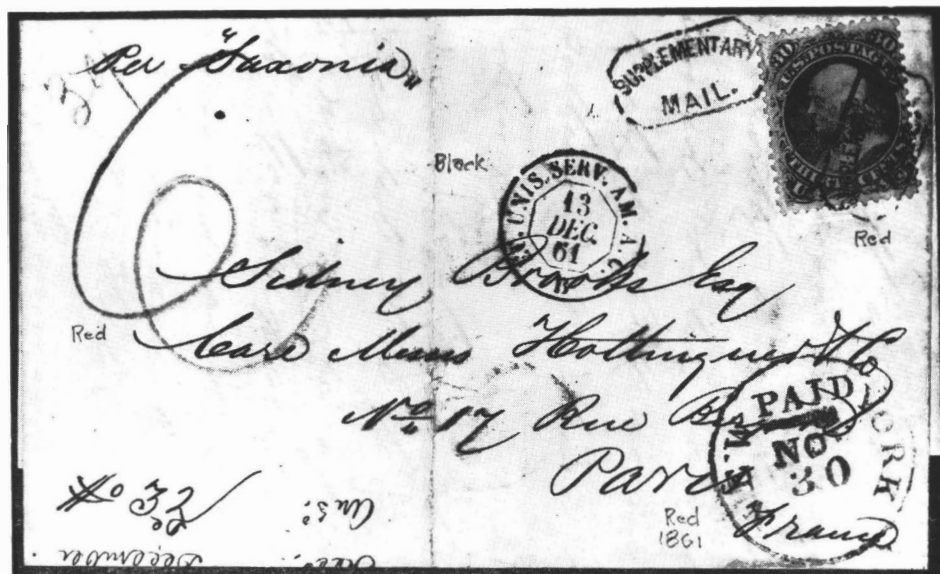 Per "Saxonia"
SUPPLEMENTARY
MAIL.
30 30
U.S. POSTAGE
Black
ET. UNIS. SERV. AM. A.C.
13
DEC.
61
Red
Sidney Brooks Esq
Red
Care Messrs Hottinguer & Co
No 17 Rue
Paris
France
NEW YORK
PAID
NO
30
Red
1861
No 32
Ans.
December